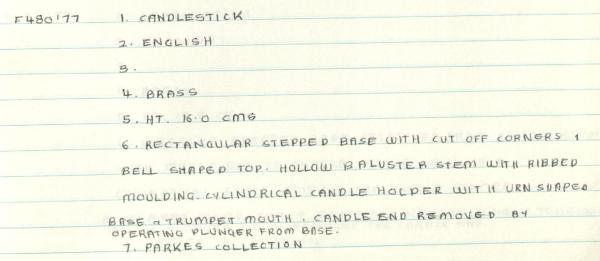 F480'77 1. CANDLESTICK
2. ENGLISH
3.
4. BRASS
5. HT. 16.0 CMS
6. RECTANGULAR STEPPED BASE WITH CUT OFF CORNERS &
BELL SHAPED TOP. HOLLOW BALUSTER STEM WITH RIBBED
MOULDING. CYLINDRICAL CANDLE HOLDER WITH URN SHAPED
BASE & TRUMPET MOUTH. CANDLE END REMOVED BY
OPERATING PLUNGER FROM BASE.
7. PARKES COLLECTION